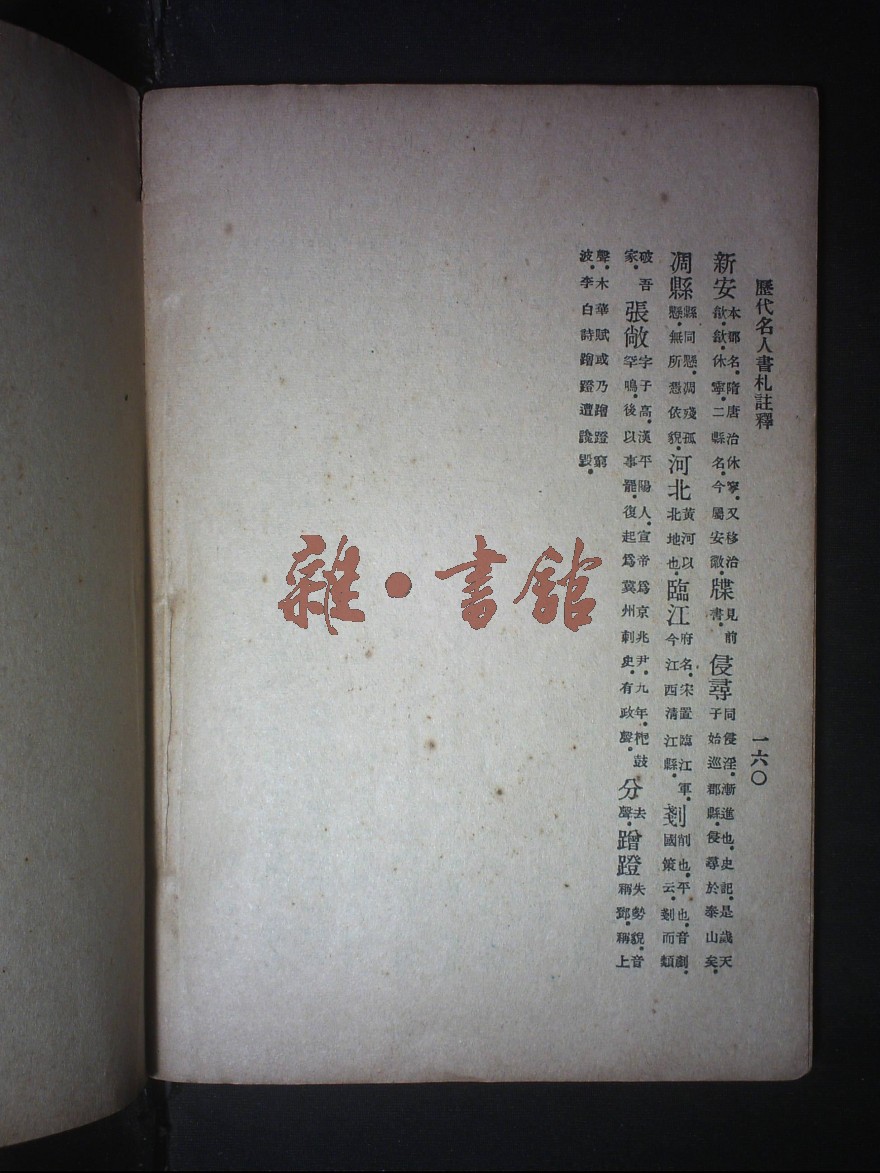 歷代名人書札註釋 一六〇
新安本郡名.隋唐治休寧.又移治歙.歙.休寧.二縣名.今屬安徽.牒見前書.侵尋同侵淫.漸進也.史記.是歲天子始巡郡縣.侵尋於泰山矣.
凋縣縣同懸.凋殘孤懸.無所憑依貌.河北黃河以北地也.臨江府名.宋置臨江軍.今江西清江縣.剗削也.平也.音剷.國策云.剗而類
破吾家.張敞字子高.漢平陽人.宣帝爲京兆尹.九年.枹鼓罕鳴.後以事罷.復起爲冀州刺史.有政聲.分去聲.蹭蹬失勢貌.音稱鄧.稱上
聲.木華賦或乃蹭蹬窮波.李白詩蹭蹬遭讒毀.
雜·書館